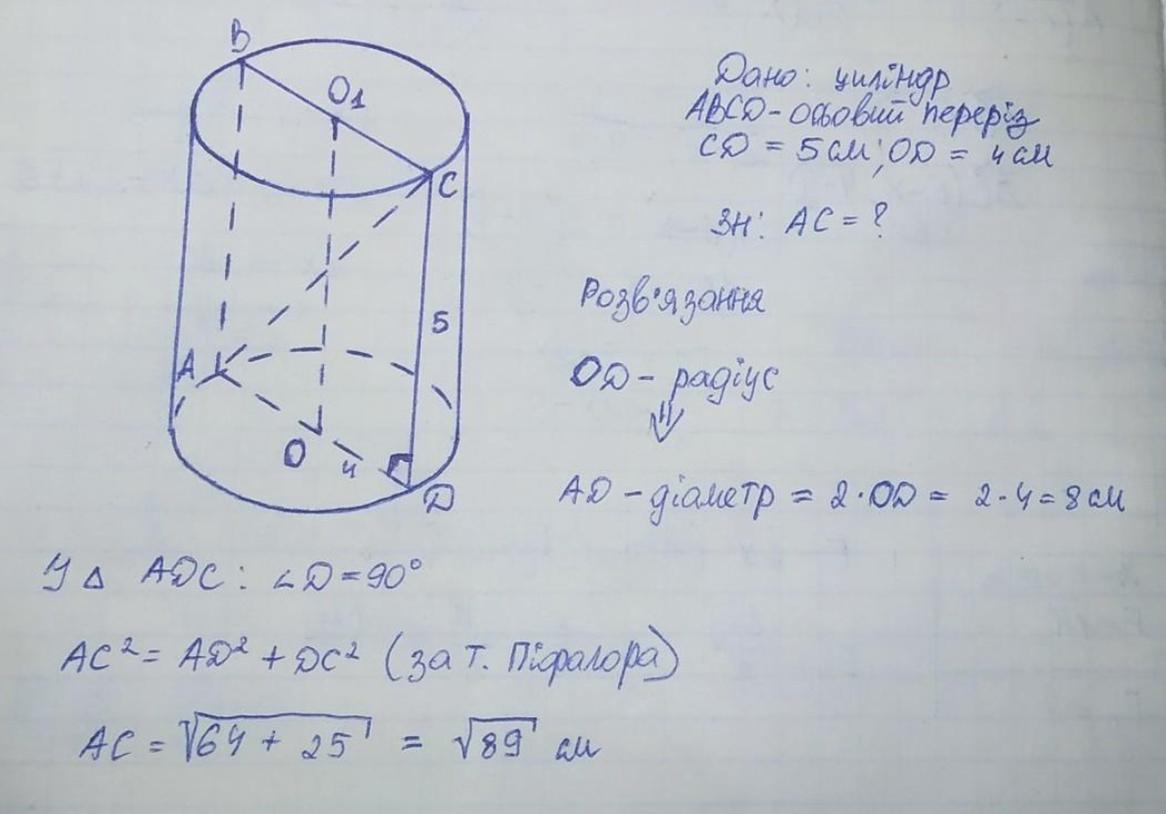 B
O1
C
5
A
O
4
D
Дано: циліндр
ABCD - осьовий переріз
CD = 5 см; OD = 4 см
Зн: AC = ?
Розв'язання
OD - радіус
⇓
AD - діаметр = 2 · OD = 2 · 4 = 8 см
У Δ ADC: ∠D = 90°
AC² = AD² + DC² (за т. Піфагора)
AC = √64 + 25 = √89 см